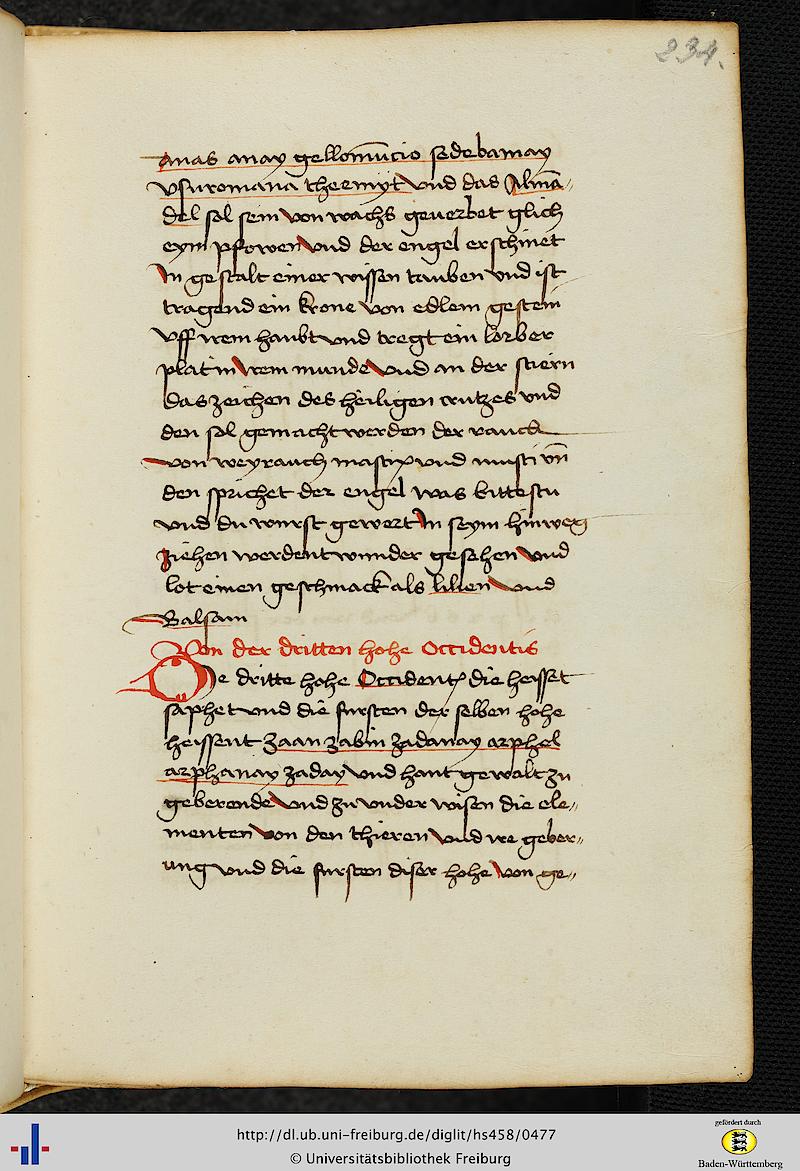 234.
anas anay gellom̄ucio sedebamay
vsuromana theemyt vnd das Almā„
del sol sein von wachs geuerbet glich
eym pfowen vnd der engel erschinet
In gestalt einer wissen tauben vnd ist
tragend ein krone von edlem gestein
vff irem haubt vnd tregt ein lorber
plat in irem munde vnd an der stiern
das zeichen des heiligen crutzes vnd
den sol gemacht werden der rauch
von weyrauch mastix vnd musti vn̄
den sprichet der engel was bittestu
vnd du wirst gewert In seym hinweg
ziehen werdent wunder gesehen vnd
lot einen geschmack als lilien vnd
Balsam
Von der dritten hohe Occidentis
De dritte hohe Occident die heisset
saphet vnd die fursten der selben hohe
heissent zaan zabin zadanay arphel
arphanay zaday vnd hant gewalt zu
geberende vnd zu vnder wisen die ele„
menten von den thieren vnd ire geber„
ung vnd die fursten diser hohe von ge„
http://dl.ub.uni-freiburg.de/diglit/hs458/0477
© Universitätsbibliothek Freiburg
gefördert durch
Baden-Württemberg